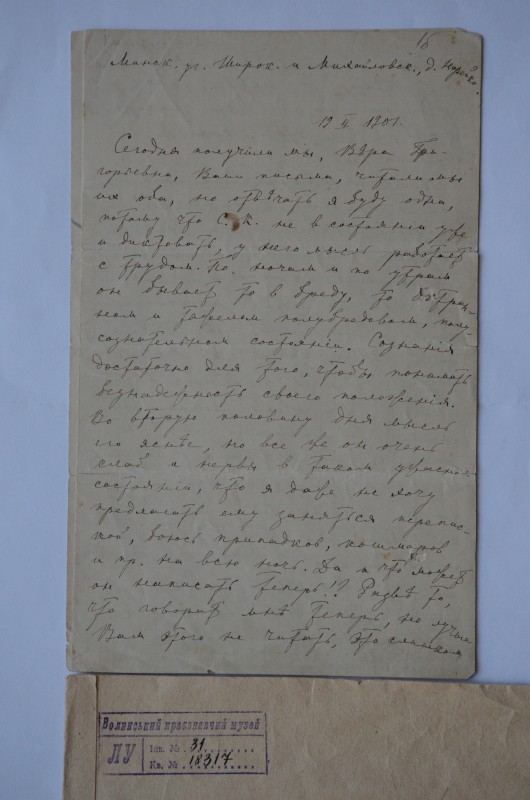 16
Минск. уг. Широк. и Михайловск., д.
19 II 1901.
Сегодня получили мы, Вѣра Гри-
горьевна, Ваши письма, читали мы
их оба, но отвѣчать я буду одна,
потому что С. К. не в состоянии уже
и диктовать, у него мысль работает
с трудом. По ночам и по утрам
он бывает то в бреду, то в
и тяжелом полубредовом, полу-
сознательном состоянии. Сознания
достаточно для того, чтобы понимать
безнадежность своего положения.
Во вторую половину дня мысль
его яснѣе, но все же он очень
слаб и нервы в таком ужасном
состоянии, что я даже не хочу
предлагать ему заняться перепис-
кой, боюсь припадков, кошмаров
и пр. на всю ночь. Да и что может
он написать теперь!! Развѣ то,
что говорит мнѣ теперь, но лучше
Вам этого не читать, это слишком
Волинський краєзнавчий музей
ЛУ
Інв. № 31
Кв. № 18317